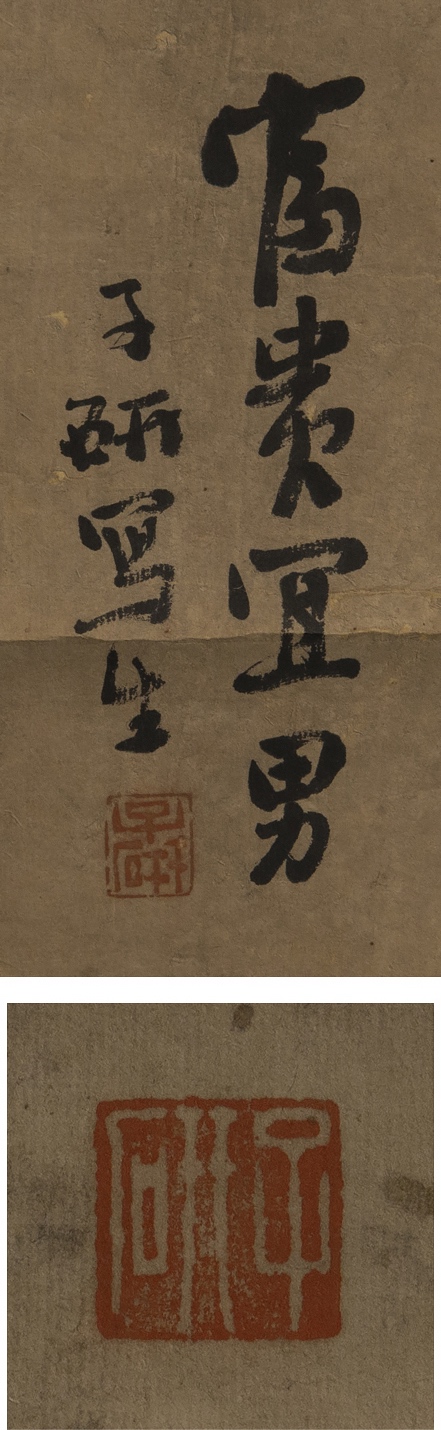 富貴宜男
子研写生
子研
子研